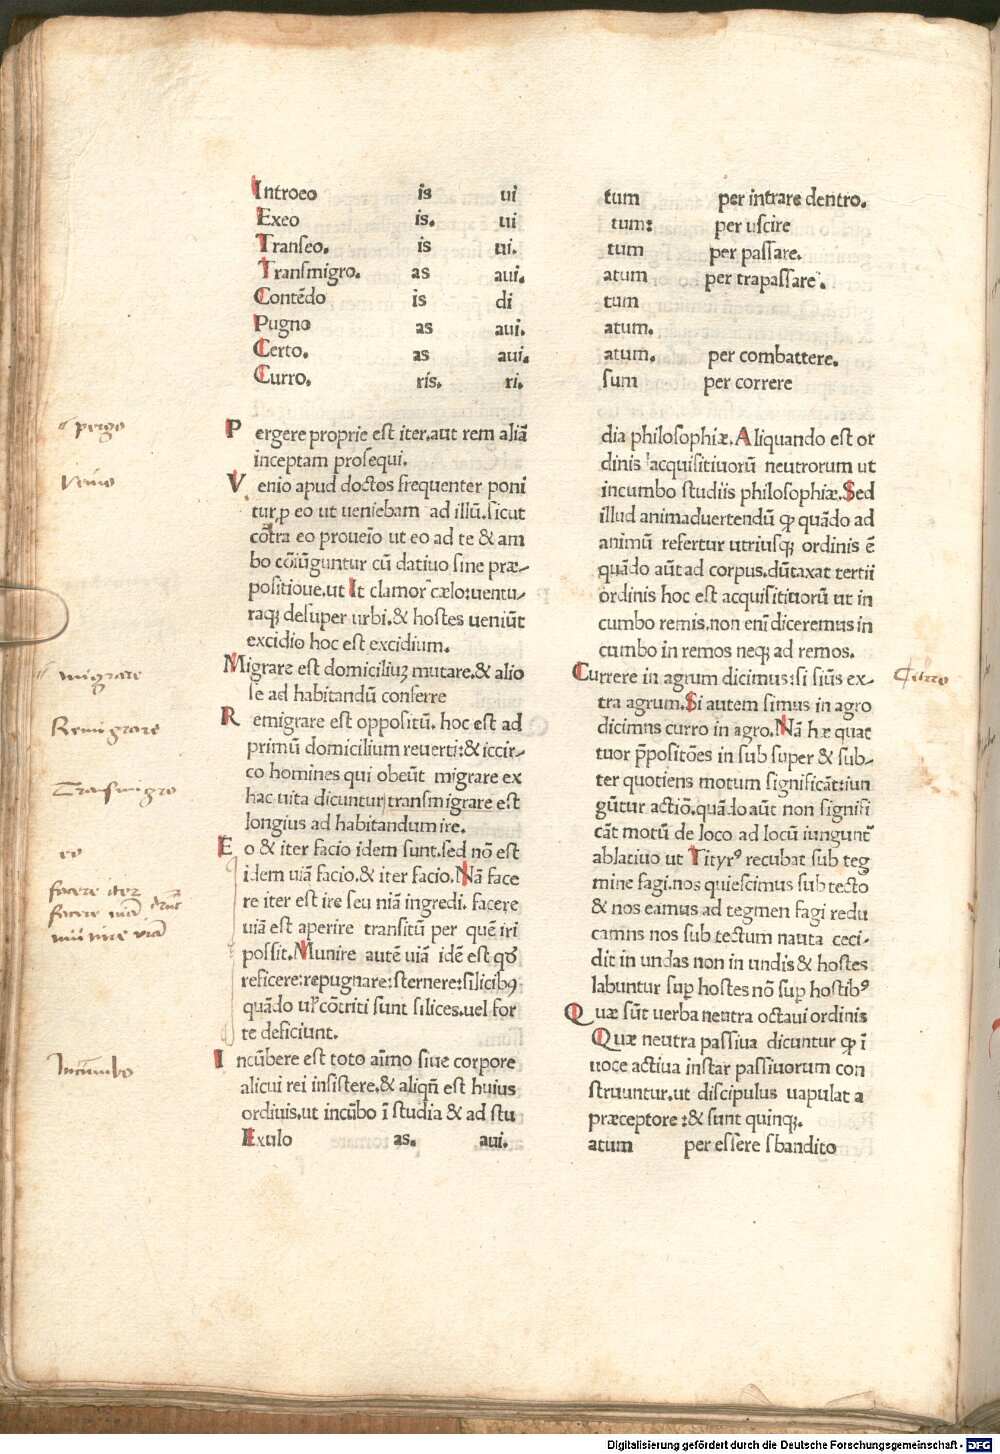 Introeo is ui tum per intrare dentro.
Exeo is. ui tum: per uſcire
Tranſeo. is ui. tum per paſſare.
Tranſmigro. as aui. atum per trapaſſare.
Contēdo is di tum
Pugno as aui. atum.
Certo. as aui. atum. per combattere.
Curro. ris. ri. ſum per correre
pergo
Pergere proprie eſt iter.aut rem aliā
inceptam proſequi.
Venio
Venio apud doctos frequenter poni
tur ꝓ eo ut ueniebam ad illū.ſicut
cōtra eo proueīo ut eo ad te & am
bo cōiūguntur cū datiuo ſine præ-
poſitioue.ut It clamor cælo:uentu-
raq; deſuper urbi.& hoſtes ueniūt
excidio hoc eſt excidium.
migrare
Migrare eſt domiciliuʒ mutare.& alio
ſe ad habitandū conferre
Remigrare
Remigrare eſt oppoſitū. hoc eſt ad
primū domicilium reuerti:& iccir-
co homines qui obeūt migrare ex
Transmigro
hac uita dicuntur tranſmigrare eſt
longius ad habitandum ire.
eo
Eo & iter facio idem ſunt.ſed nō eſt
idem uiā facio.& iter facio.Nā face
facere iter
re iter eſt ire ſeu niā ingredi. facere
facere uiā
uiā eſt aperire tranſitū per quē iri
munire viā
poſſit.Munire autē uiā idē eſt qđ
reficere:repugnare:ſternere:ſilicibꝰ
quādo ul̄ cōtriti ſunt ſilices.uel for
te deficiunt.
Incūmbo
Incūbere eſt toto aīmo ſiue corpore
alicui rei inſiſtere.& aliqñ eſt huius
ordiuis.ut incūbo ī ſtudia & ad ſtu
dia philoſophiæ.Aliquando eſt or
dinis acquiſitiuorū neutrorum ut
incumbo ſtudiis philoſophiæ.Sed
illud animaduertendū ꝙ quādo ad
animū refertur utriuſq; ordinis ē
quādo aūt ad corpus.dūtaxat tertii
ordinis hoc eſt acquiſitiuorū ut in
cumbo remis.non enī diceremus in
cumbo in remos neq; ad remos.
Curro
Currere in agrum dicimus:ſi ſiūs ex-
tra agrum.Si autem ſimus in agro
dicimns curro in agro.Nā hæ quat
tuor p̄poſitōes in ſub ſuper & ſub-
ter quotiens motum ſignificāt:iun
gūtur actiō.quādo aūt non ſignifi
cāt motū de loco ad locū iungunt̄
ablatiuo ut Tityrꝰ recubat ſub teg
mine fagi.nos quieſcimus ſub tecto
& nos eamus ad tegmen fagi redu
camns nos ſub tectum nauta ceci-
dit in undas non in undis & hoſtes
labuntur ſuꝑ hoſtes nō ſuꝑ hoſtibꝰ
Quæ ſūt uerba neutra octaui ordinis
Quæ neutra paſſiua dicuntur ꝙ ī
uoce actiua inſtar paſſiuorum con
ſtruuntur.ut diſcipulus uapulat a
præceptore:& ſunt quinq;.
Exulo as. aui. atum per eſſere sbandito
Digitalisierung gefördert durch die Deutsche Forschungsgemeinschaft - DFG